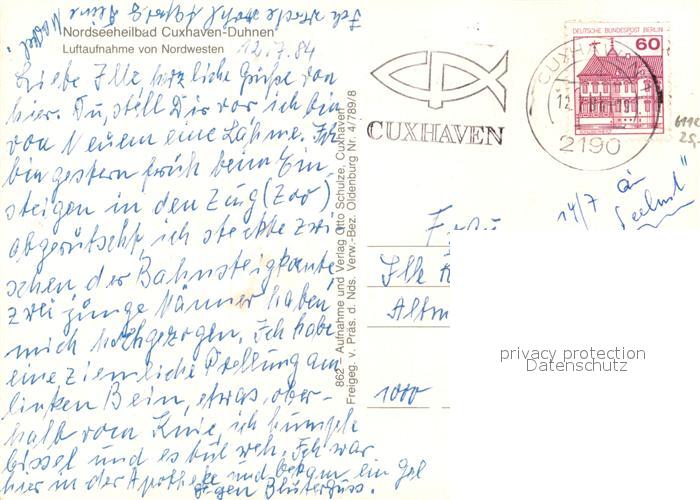 Nordseeheilbad Cuxhaven-Duhnen
Luftaufnahme von Nordwesten
12.7.84
Liebe Ilse herzliche Grüße von
hier. Du, stell Dir vor ich bin
von Neuem eine Lahme. Ich
bin gestern früh beim Ein
steigen in den Zug (Zoo)
abgerutscht ich steckte zwi
schen der Bahnsteigkante
zwei junge Männer haben
mich hochgezogen. Ich habe
eine ziemliche Prellung am
linken Bein, etwas ober-
halb vom Knie, ich humple
bissel und es tut weh. Ich war
hier in der Apotheke und bekam ein Gel
gegen Bluterguss.
Ich
Deine
862 - Aufnahme und Verlag Otto Schulze, Cuxhaven
Freigeg. v. Präs. d. Nds. Verw.-Bez. Oldenburg Nr. 4/789/8
CUXHAVEN
DEUTSCHE BUNDESPOST BERLIN
60
CUXHAVEN
12.
2190
25,-
14/7
Frau
Ilse
Altm
1000
privacy protection
Datenschutz